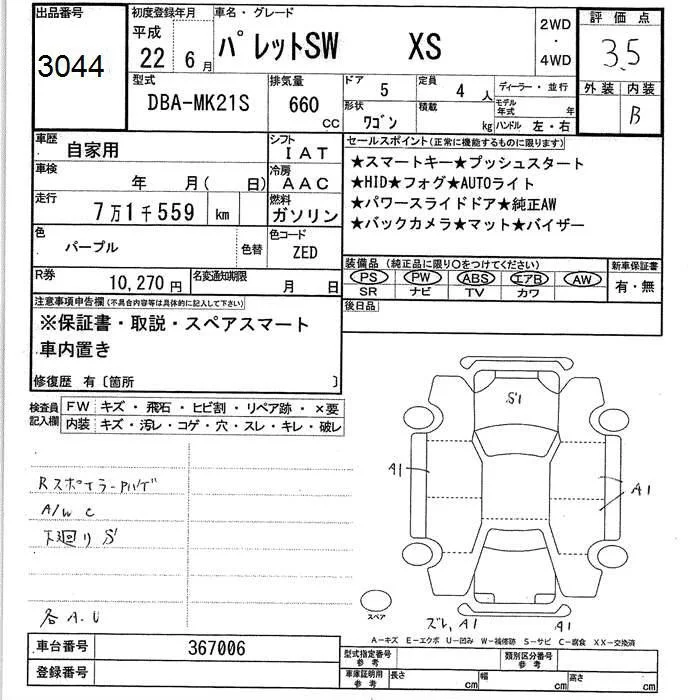 出品番号 初度登録年月 車名・グレード 2WD・4WD 評価点
3044 平成22年6月 パレットSW XS 3.5
型式 排気量 ドア 5 定員 4人 ディーラー・並行 外装 内装
DBA-MK21S 660cc 形状 ワゴン 積載 kg モデル年式 年 B
ハンドル 左・右
車歴 自家用 シフト IAT セールスポイント(正常に機能するものに限ります)
車検 年 月( 日) 冷房 AAC ★スマートキー★プッシュスタート
★HID★フォグ★AUTOライト
走行 7万1千559 km 燃料 ガソリン ★パワースライドドア★純正AW
★バックカメラ★マット★バイザー
色 パープル 色替 色コード ZED
装備品(純正品に限り○をつけてください) 新車保証書
PS PW ABS エアB AW 有・無
SR ナビ TV カワ
R券 10,270円 名変通知期限 月 日
後日品
注意事項申告欄(不具合内容等は具体的に記入して下さい)
※保証書・取説・スペアスマート
車内置き
修復歴 有〔箇所 〕
検査員記入欄 FW キズ・飛石・ヒビ割・リペア跡・×要
内装 キズ・汚レ・コゲ・穴・スレ・キレ・破レ
S1
A1
A1
Rスポイラー
A/W C
下廻り S
各A.U
スペア
ズレ, A1 A1
A-キズ E-エクボ U-凹み W-補修跡 S-サビ C-腐食 XX-交換済
車台番号 367006
型式指定番号 参考 類別区分番号 参考
登録番号
車庫証明用 参考 長さ cm 幅 cm 高さ cm